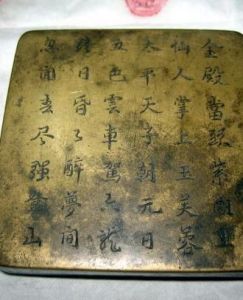 金殿當頭紫閣重
仙人掌上玉芙蓉
太平天子朝元日
五色雲車駕六龍
終日昏々醉夢間
忽聞春尽强登山